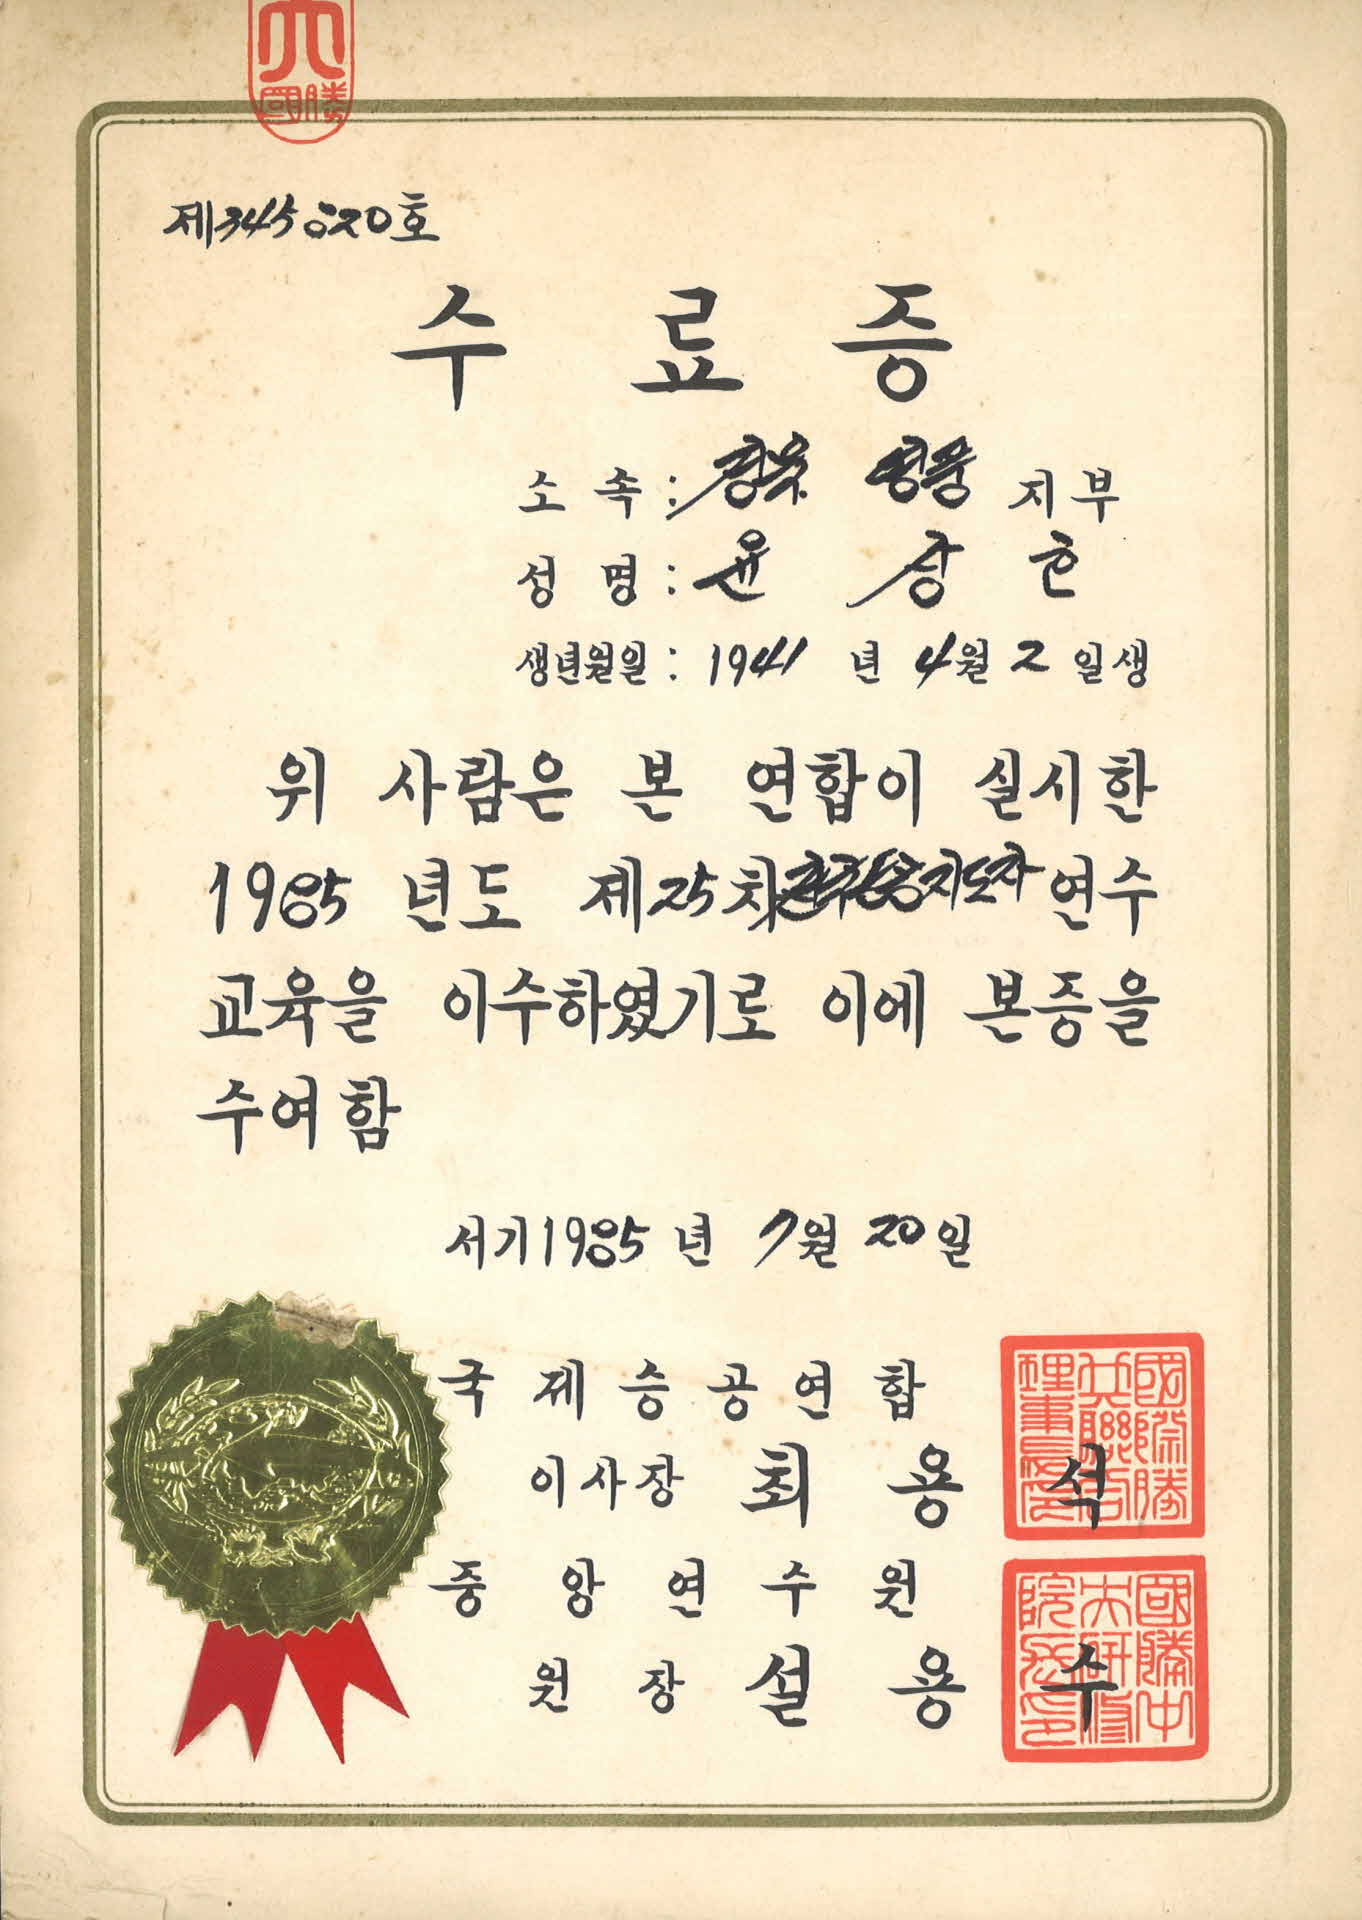 大
國勝
제345820호
수 료 증
소 속: 지부
성 명: 윤 강 호
생년월일: 1941 년 4월 2 일생
위 사람은 본 연합이 실시한
1985 년도 제25차 지도자 연수
교육을 이수하였기로 이에 본증을
수여함
서기1985년 7월 20일
국제승공연합
이사장 최 용 석
중앙연수원
원 장 설 용 수
國際勝共聯合理事長印
國勝中央研修院長印